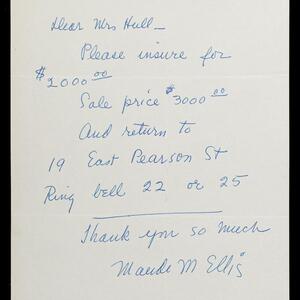 Dear Mrs Hull—
Please insure for
$2000.00
Sale price $3000.00
And return to
19 East Pearson St
Ring bell 22 or 25
Thank you so much
Maude M Ellis